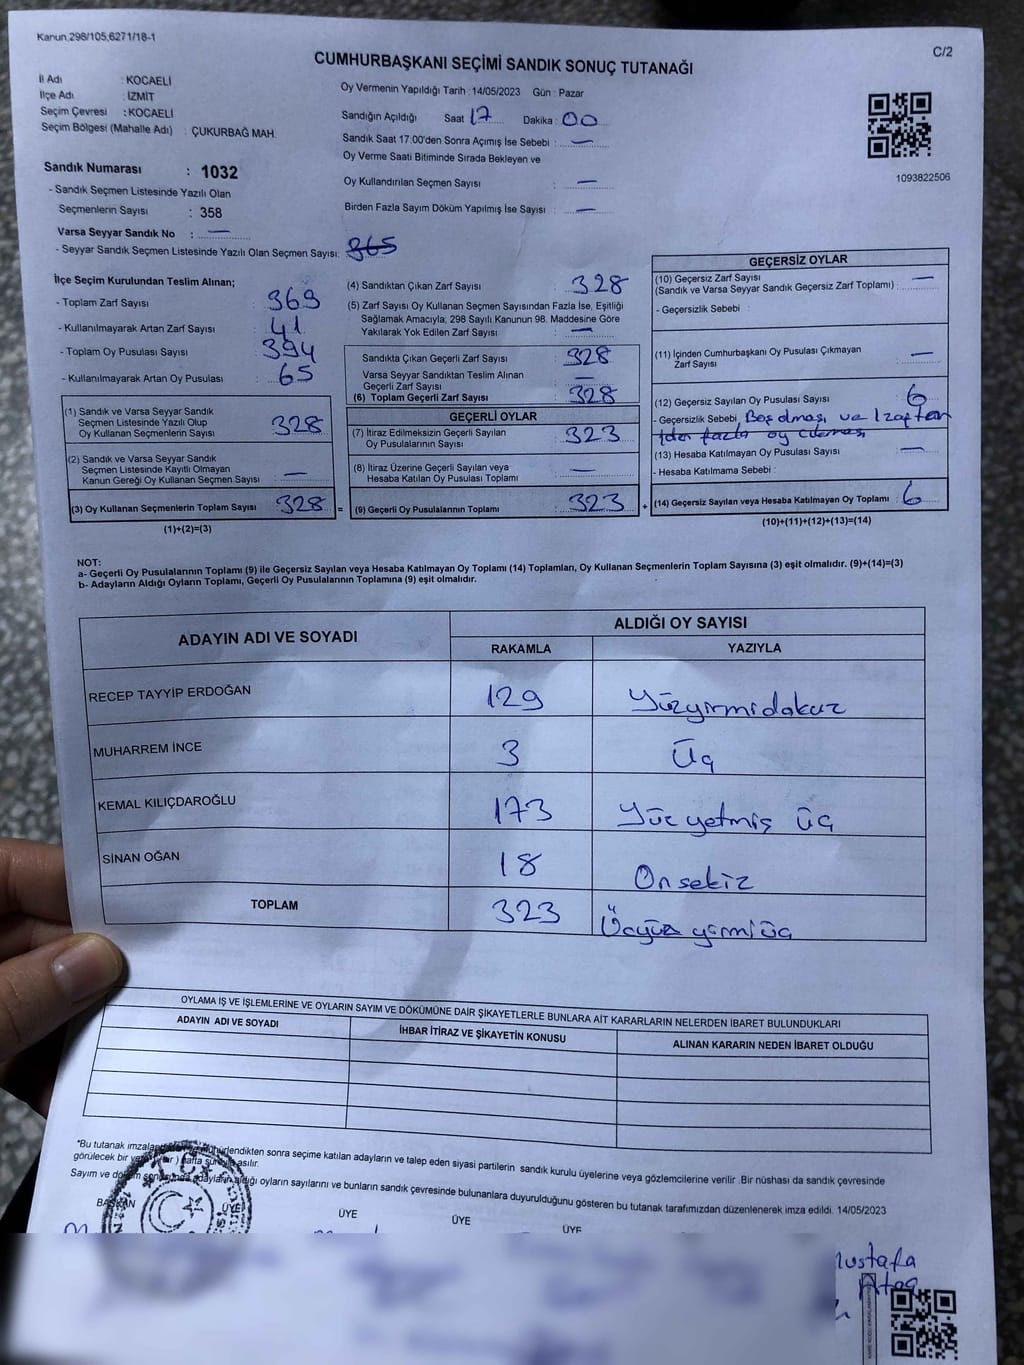 Kanun,298/105,6271/18-1
C/2
CUMHURBAŞKANI SEÇİMİ SANDIK SONUÇ TUTANAĞI
İl Adı : KOCAELİ
İlçe Adı : İZMİT
Seçim Çevresi : KOCAELİ
Seçim Bölgesi (Mahalle Adı) : ÇUKURBAĞ MAH.
Sandık Numarası : 1032
- Sandık Seçmen Listesinde Yazılı Olan
Seçmenlerin Sayısı : 358
Varsa Seyyar Sandık No : —
- Seyyar Sandık Seçmen Listesinde Yazılı Olan Seçmen Sayısı: 365
Oy Vermenin Yapıldığı Tarih : 14/05/2023 Gün : Pazar
Sandığın Açıldığı Saat 17 Dakika : 00
Sandık Saat 17.00'den Sonra Açımış İse Sebebi : —
Oy Verme Saati Bitiminde Sırada Bekleyen ve
Oy Kullandırılan Seçmen Sayısı : —
Birden Fazla Sayım Döküm Yapılmış İse Sayısı : —
1093822506
İlçe Seçim Kurulundan Teslim Alınan;
- Toplam Zarf Sayısı : 369
- Kullanılmayarak Artan Zarf Sayısı : 41
- Toplam Oy Pusulası Sayısı : 394
- Kullanılmayarak Artan Oy Pusulası : 65
(1) Sandık ve Varsa Seyyar Sandık
Seçmen Listesinde Yazılı Olup
Oy Kullanan Seçmenlerin Sayısı : 328
(2) Sandık ve Varsa Seyyar Sandık
Seçmen Listesinde Kayıtlı Olmayan
Kanun Gereği Oy Kullanan Seçmen Sayısı : —
(3) Oy Kullanan Seçmenlerin Toplam Sayısı : 328 =
(1)+(2)=(3)
(4) Sandıktan Çıkan Zarf Sayısı : 328
(5) Zarf Sayısı Oy Kullanan Seçmen Sayısından Fazla İse, Eşitliği
Sağlamak Amacıyla, 298 Sayılı Kanunun 98. Maddesine Göre
Yakılarak Yok Edilen Zarf Sayısı : —
Sandıkta Çıkan Geçerli Zarf Sayısı : 328
Varsa Seyyar Sandıktan Teslim Alınan
Geçerli Zarf Sayısı : —
(6) Toplam Geçerli Zarf Sayısı : 328
GEÇERLİ OYLAR
(7) İtiraz Edilmeksizin Geçerli Sayılan
Oy Pusulalarının Sayısı : 323
(8) İtiraz Üzerine Geçerli Sayılan veya
Hesaba Katılan Oy Pusulası Toplamı : —
(9) Geçerli Oy Pusulalarının Toplamı : 323 +
GEÇERSİZ OYLAR
(10) Geçersiz Zarf Sayısı
(Sandık ve Varsa Seyyar Sandık Geçersiz Zarf Toplamı) : —
- Geçersizlik Sebebi :
(11) İçinden Cumhurbaşkanı Oy Pusulası Çıkmayan
Zarf Sayısı : —
(12) Geçersiz Sayılan Oy Pusulası Sayısı : 6
- Geçersizlik Sebebi : Boş olması ve 1 zaftan
fazla oy
(13) Hesaba Katılmayan Oy Pusulası Sayısı : —
- Hesaba Katılmama Sebebi :
(14) Geçersiz Sayılan veya Hesaba Katılmayan Oy Toplamı : 6
(10)+(11)+(12)+(13)=(14)
NOT:
a- Geçerli Oy Pusulalarının Toplamı (9) ile Geçersiz Sayılan veya Hesaba Katılmayan Oy Toplamı (14) Toplamları, Oy Kullanan Seçmenlerin Toplam Sayısına (3) eşit olmalıdır. (9)+(14)=(3)
b- Adayların Aldığı Oyların Toplamı, Geçerli Oy Pusulalarının Toplamına (9) eşit olmalıdır.
ADAYIN ADI VE SOYADI ALDIĞI OY SAYISI
RAKAMLA YAZIYLA
RECEP TAYYİP ERDOĞAN 129 Yüzyirmidokuz
MUHARREM İNCE 3 Üç
KEMAL KILIÇDAROĞLU 173 Yüz yetmiş üç
SİNAN OĞAN 18 On sekiz
TOPLAM 323 Üçyüz yirmi üç
OYLAMA İŞ VE İŞLEMLERİNE VE OYLARIN SAYIM VE DÖKÜMÜNE DAİR ŞİKAYETLERLE BUNLARA AİT KARARLARIN NELERDEN İBARET BULUNDUKLARI
ADAYIN ADI VE SOYADI İHBAR İTİRAZ VE ŞİKAYETİN KONUSU ALINAN KARARIN NEDEN İBARET OLDUĞU
*Bu tutanak sonra seçime katılan adayların ve talep eden siyasi partilerin sandık kurulu üyelerine veya gözlemcilerine verilir .Bir nüshası da sandık çevresinde
görülecek bir asılır.
Sayım ve aldığı oyların sayılarını ve bunların sandık çevresinde bulunanlara duyurulduğunu gösteren bu tutanak tarafımızdan düzenlenerek imza edildi. 14/05/2023
BAŞKAN ÜYE ÜYE ÜYE ÜYE
Mustafa